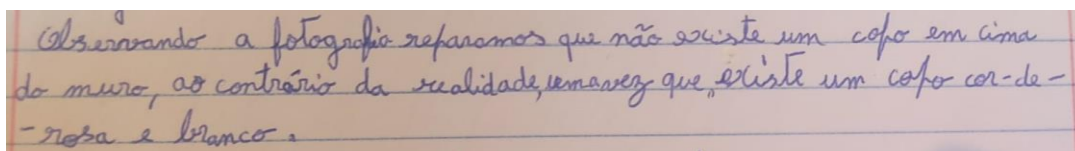 Observando a fotografia reparamos que não existe um copo em cima
do muro, ao contrário da realidade, uma vez que, existe um copo cor-de-
-rosa e branco.